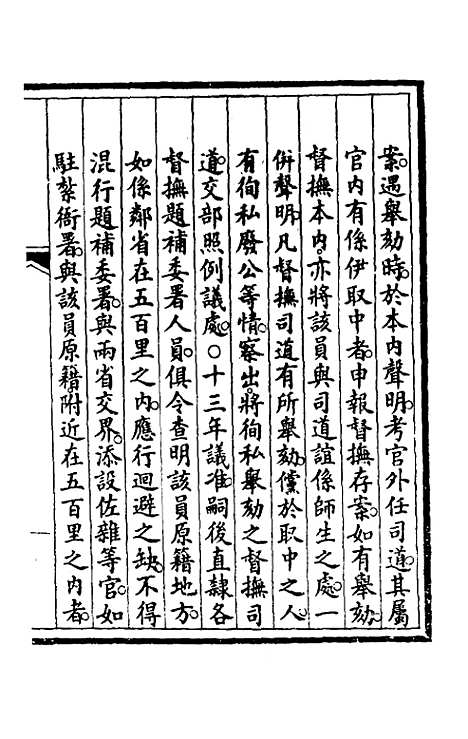 案。遇舉劾時。於本內聲明。考官外任司道。其屬
官內有係伊取中者。申報督撫存案。如有舉劾。
督撫本內。亦將該員與司道誼係師生之處。一
併聲明。凡督撫司道有所舉劾。儻於取中之人。
有徇私廢公等情。察出。將徇私舉劾之督撫司
道。交部照例議處。○十三年議准。嗣後直隸各
督撫題補委署人員。俱令查明該員原籍地方。
如係鄰省在五百里之內。應行迴避之缺。不得
混行題補委署。與兩省交界。添設佐雜等官。如
駐紮衙署。與該員原籍。附近在五百里之內者。